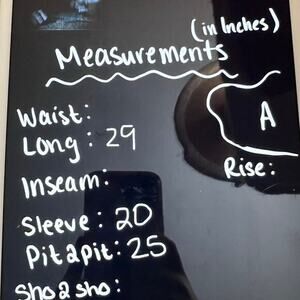 (in Inches)
Measurements
Waist:
Long: 29
A
Rise:
Inseam:
Sleeve: 20
Pit2pit: 25
Sho2sho: